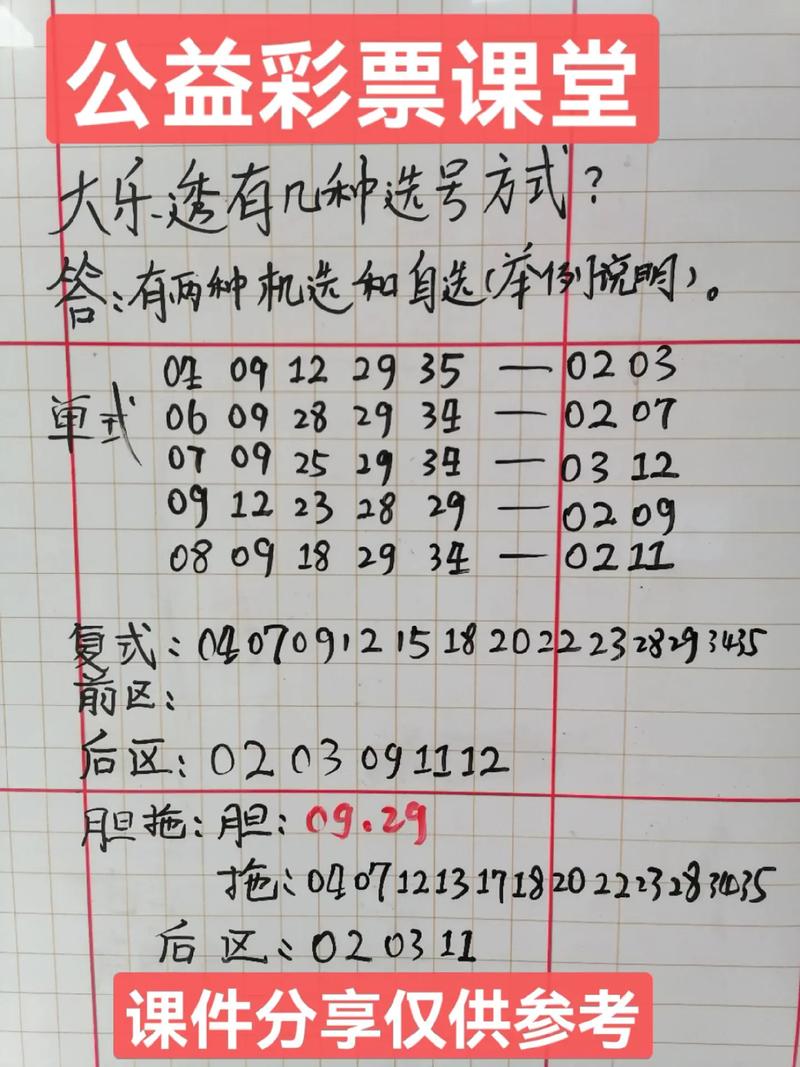 公益彩票课堂
大乐透有几种选号方式?
答:有两种机选和自选(举例说明)。
单式
04 09 12 29 35 — 02 03
06 09 28 29 34 — 02 07
07 09 25 29 34 — 03 12
09 12 23 28 29 — 02 09
08 09 18 29 34 — 02 11
复式:04 07 09 12 15 18 20 22 23 28 29 34 35
前区:
后区:02 03 09 11 12
胆拖:胆:09.29
拖:04 07 12 13 17 18 20 22 23 28 34 35
后区:02 03 11
课件分享仅供参考